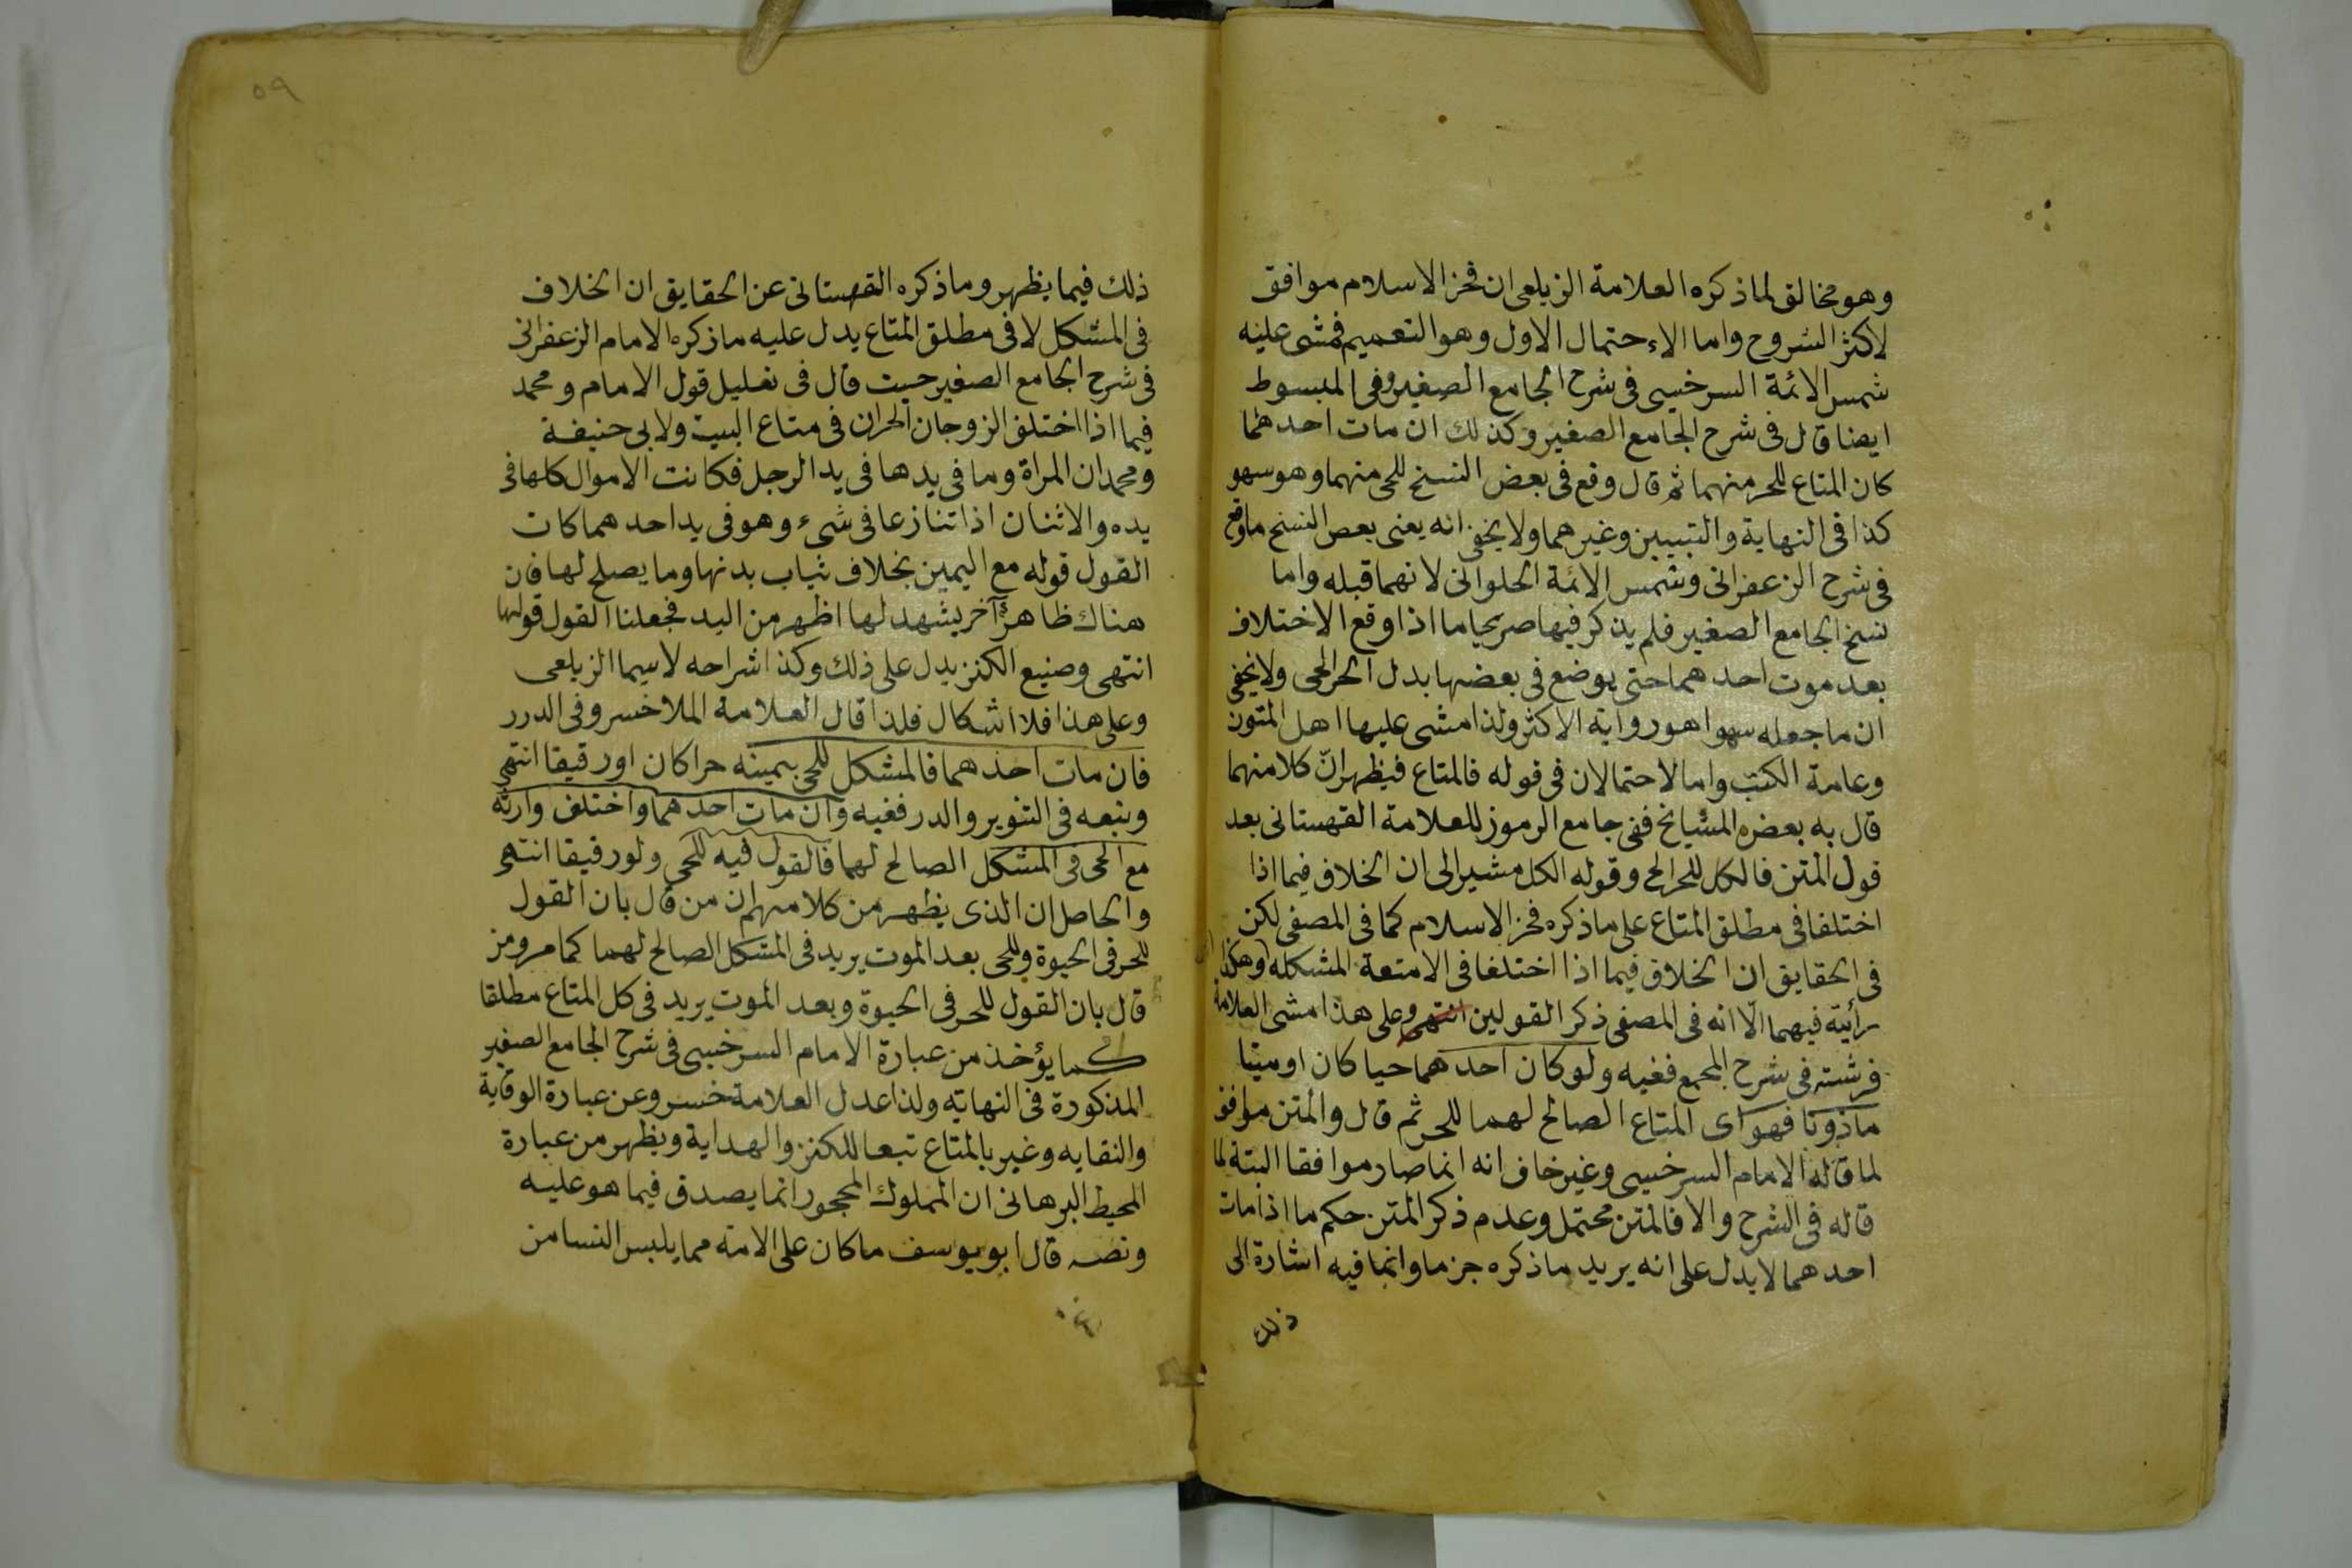 وهو مخالف لما ذكره العلامة الزيلعى ان فخر الاسلام موافق
لاكثر الشروح واما الاحتمال الاول وهو التعميم فمشى عليه
شمس الائمة السرخسى فى شرح الجامع الصغير وفى المبسوط
ايضا قال فى شرح الجامع الصغير وكذلك ان مات احدهما
كان المتاع للحر منهما ثم قال وقع فى بعض النسخ للحى منهما وهو سهو
كذا فى النهاية والتبيين وغيرهما ولا يخفى انه يعنى بعض النسخ ما وقع
فى شرح الزعفرانى وشمس الائمة الحلوانى لانهما قبله واما
نسخ الجامع الصغير فلم يذكر فيها صريحا ما اذا وقع الاختلاف
بعد موت احدهما حتى يوضع فى بعضها بدل الحر الحى ولا يخفى
ان ما جعله سهوا هو رواية الاكثر ولذا مشى عليها اهل المتون
وعامة الكتب واما الاحتمالان فى قوله فالمتاع فيظهر انّ كلا منهما
قال به بعض المشايخ ففى جامع الرموز للعلامة القهستانى بعد
قول المتن فالكل للحر الخ وقوله الكل مشير الى ان الخلاف فيما اذا
اختلفا فى مطلق المتاع على ما ذكره فخر الاسلام كما فى المصفى لكن
فى الحقايق ان الخلاف فيما اذا اختلفا فى الامتعة المشكله وهكذا
رأيته فيهما الّا انه فى المصفى ذكر القولين انتهى وعلى هذا مشى العلامة
فرشته فى شرح المجمع ففيه ولو كان احدهما حيا كان او ميتا
مأذونا فهو اى المتاع الصالح لهما للحر ثم قال والمتن موافق
لما قاله الامام السرخسى وغير خاف انه انما صار موافقا البتة لما
قاله فى الشرح والا فالمتن محتمل وعدم ذكر المتن حكم ما اذا مات
احدهما لا يدل على انه يريد ما ذكره جزما وانما فيه اشارة الى
ذلك
٥٩
ذلك فيما يظهر وما ذكره القهستانى عن الحقايق ان الخلاف
فى المشكل لا فى مطلق المتاع يدل عليه ما ذكره الامام الزعفرانى
فى شرح الجامع الصغير حيث قال فى تعليل قول الامام ومحمد
فيما اذا اختلف الزوجان الحران فى متاع البيت ولابى حنيفة
ومحمد ان المراة وما فى يدها فى يد الرجل فكانت الاموال كلها فى
يده والاثنان اذا تنازعا فى شىء وهو فى يد احدهما كان
القول قوله مع اليمين بخلاف ثياب بدنها وما يصلح لها فان
هناك ظاهرٌ آخر يشهد لها اظهر من اليد فجعلنا القول قولها
انتهى وصنيع الكنز يدل على ذلك وكذا شراحه لاسيما الزيلعى
وعلى هذا فلا اشكال فلذا قال العلامة الملا خسرو فى الدرر
فان مات احدهما فالمشكل للحى بيمينه حرا كان او رقيقا انتهى
وتبعه فى التنوير والدر ففيه وان مات احدهما واختلف وارثه
مع الحى فى المشكل الصالح لهما فالقول فيه للحى ولو رقيقا انتهى
والحاصل ان الذى يظهر من كلامهم ان من قال بان القول
للحر فى الحيوة وللحى بعد الموت يريد فى المشكل الصالح لهما كما مر ومن
قال بان القول للحر فى الحيوة وبعد الموت يريد فى كل المتاع مطلقا
كما يؤخذ من عبارة الامام السرخسى فى شرح الجامع الصغير
المذكورة فى النهايه ولذا عدل العلامة خسرو عن عبارة الوقاية
والنقايه وغير بالمتاع تبعا للكنز والهداية ويظهر من عبارة
المحيط البرهانى ان المملوك المحجور انما يصدق فيما هو عليه
ونصه قال ابو يوسف ما كان على الامة مما يلبس النسا من